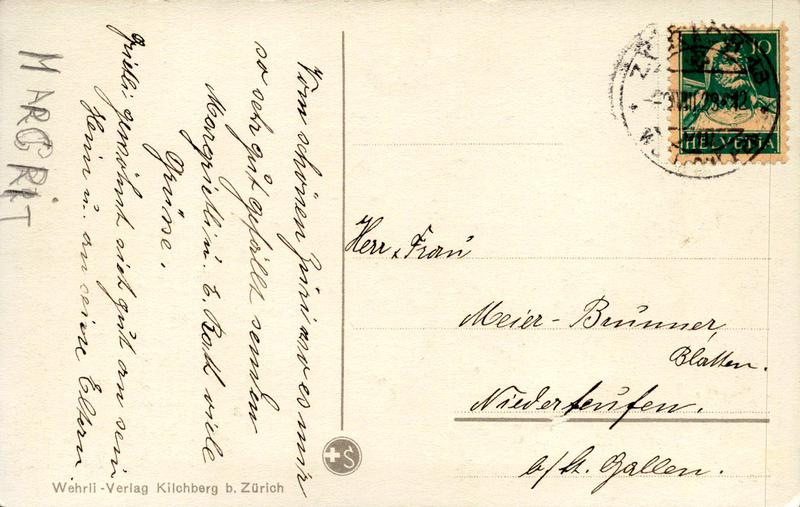 Vom schönen Züri wo es mir
so sehr gut gefällt senden
Margritli u. E. Roth viele
Grüsse.
gewöhnt sich gut an sein
Heim u. an seine Eltern.
MARGRIT
Herr & Frau
Meier-Brunner,
Blatten.
Niederteufen.
b/St. Gallen.
10
HELVETIA
Wehrli-Verlag Kilchberg b. Zürich